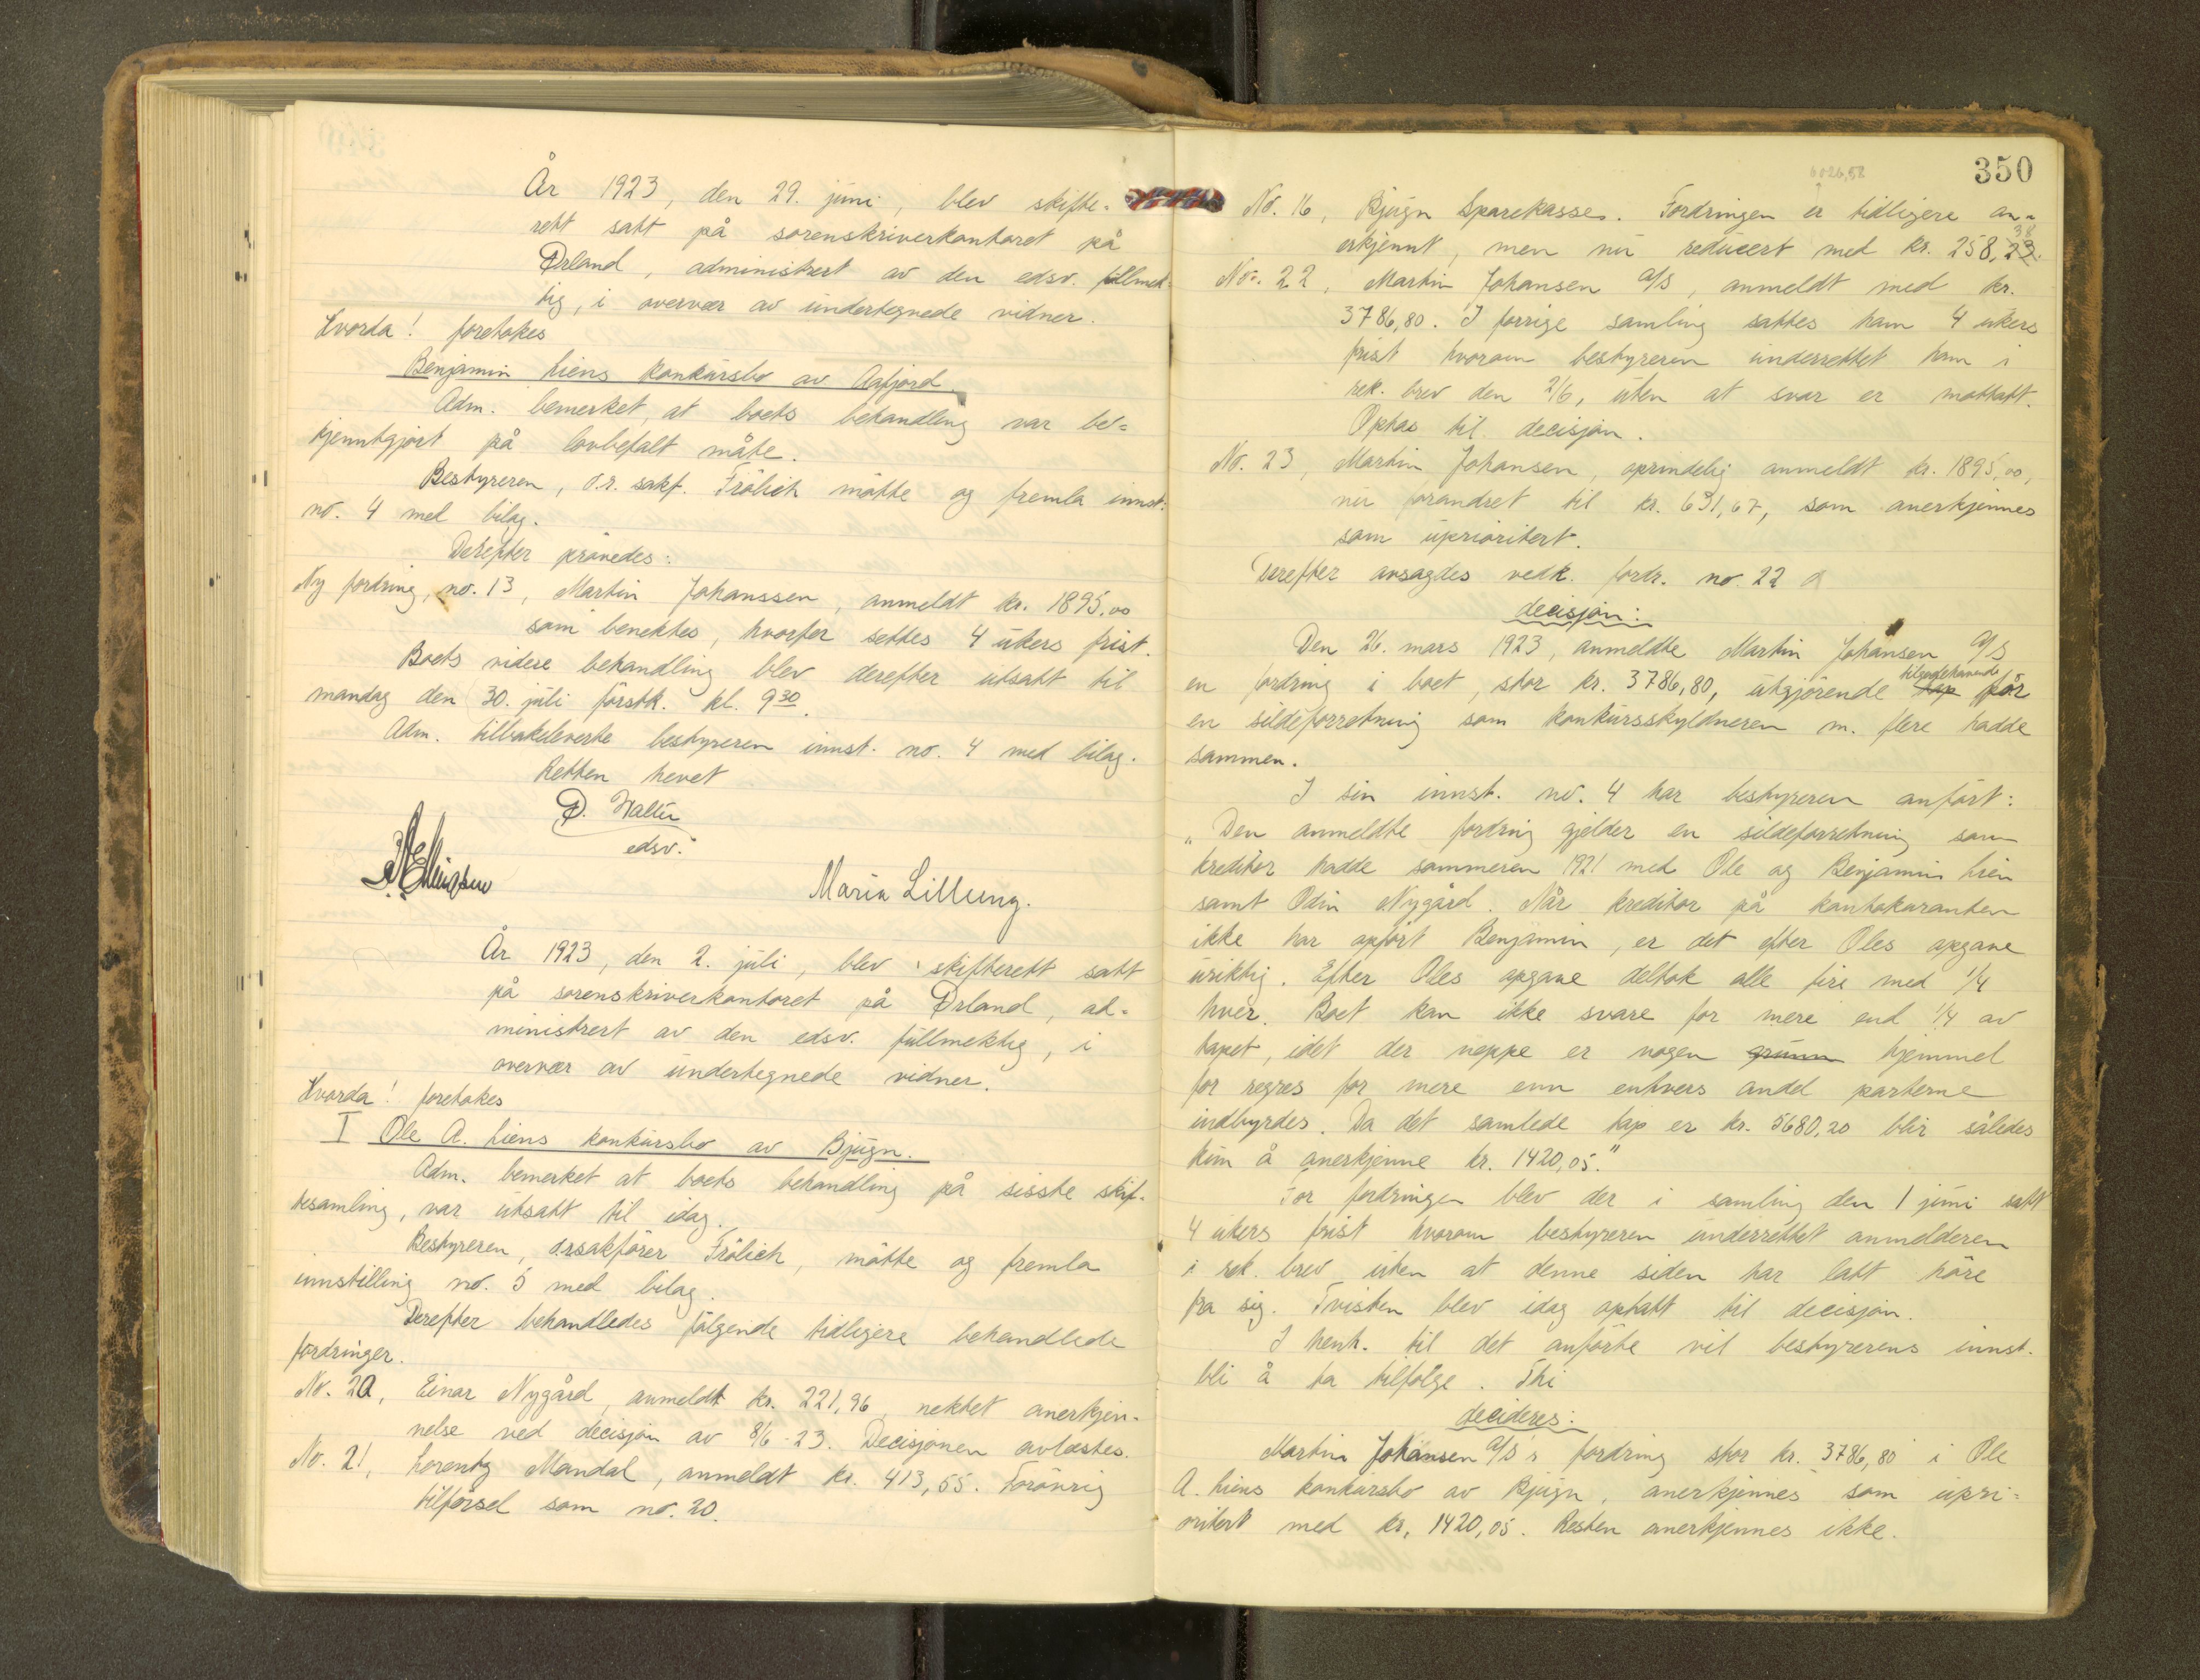 År 1923, den 29. juni, blev skifte=
rett satt på sorenskriverkontoret på
Ørland, administrert av den edsv. fullmek-
tig, i overvær av undertegnede vidner.
Hvorda! foretokes
Benjamin Liens konkursbo av Aafjord.
Adm. bemerket, at boets behandling var be-
kjenntgjort på lovbefalt måte.
Bestyreren, o.r. sakf. Frölich mötte og fremla innst.
no. 4 med bilag.
Derefter prövedes:
Ny fordring, no. 13, Martin Johanssen, anmeldt kr. 1895,00
som benektes, hvorfor settes 4 ukers frist.
Boets videre behandling blev derefter utsatt til
mandag den 30. juli förstk. kl. 9 30.
Adm. tilbakeleverte bestyreren innst. no. 4 med bilag.
Retten hevet
Ø. Walter
edsv.
Maria Lillung.
År 1923, den 2. juli, blev skifterett satt
på sorenskriverkontoret på Ørland, ad-
ministrert av den edsv. fullmektig, i
overvær av undertegnede vidner.
Hvorda! foretokes
I Ole A. Liens konkursbo av Bjugn.
Adm. bemerket at boets behandling på sisste skif-
tesamling, var utsatt til idag.
Bestyreren, o.r.sakförer Frölich, mötte og fremla
innstilling no. 5 med bilag.
Derefter behandledes fölgende tidligere behandlede
fordringer.
No. 20, Einar Nygård, anmeldt kr. 221,96, nektet anerkjen-
nelse ved decisjon av 8/6-23. Decisjonen avlæstes.
No. 21, Lorentz Mandal, anmeldt kr. 413,55. Forövrig
tilförsel som no. 20.
350
6026,58
No. 16, Bjugn Sparekasse. Fordringen er tidligere an-
erkjennt, men nu reducert med kr. 258,23. 38
No. 22, Martin Johansen A/S, anmeldt med kr.
3786,80. I forrige samling sattes ham 4 ukers
frist hvorom bestyreren underrettet ham i
rek. brev den 2/6, uten at svar er mottatt.
Optas til decisjon.
No. 23, Martin Johansen, oprindelig anmeldt kr. 1895,00,
nu forandret til kr. 631,67, som anerkjennes
som uprioritert.
Derefter avsagdes vedk. fordr. no. 22
decisjon:
Den 26. mars 1923, anmeldte Martin Johansen A/S
en fordring i boet, stor kr. 3786,80, utgjörende tap tilgodehavende for
en sildeforretning som konkursskyldneren m. flere hadde
sammen.
I sin innst. no. 4 har bestyreren anfört:
"Den anmeldte fordring gjelder en sildeforretning som
kreditor hadde sommeren 1921 med Ole og Benjamin Lien
samt Odin Nygård. Når kreditor på kontokuranten
ikke har opfört Benjamin, er det efter Oles opgave
uriktig. Efter Oles opgave deltok alle fire med 1/4
hver. Boet kan ikke svare for mere end 1/4 av
tapet, idet der neppe er nogen grunn hjemmel
for regres for mere enn enhvers andel parterne
indbyrdes. Da det samlede tap er kr. 5680,20 blir således
kun å anerkjenne kr. 1420,05."
For fordringen blev der i samling den 1 juni satt
4 ukers frist hvorom bestyreren underrettet anmelderen
i rek. brev uten at denne siden har latt höre
fra sig. Tvisten blev idag optatt til decisjon.
I henh. til det anförte vil bestyrerens innst.
bli å ta tilfölge. Thi
decideres:
Martin Johansen A/S's fordring stor kr. 3786,80 i Ole
A. Liens konkursbo av Bjugn, anerkjennes som upri-
oritert med kr. 1420,05. Resten anerkjennes ikke.